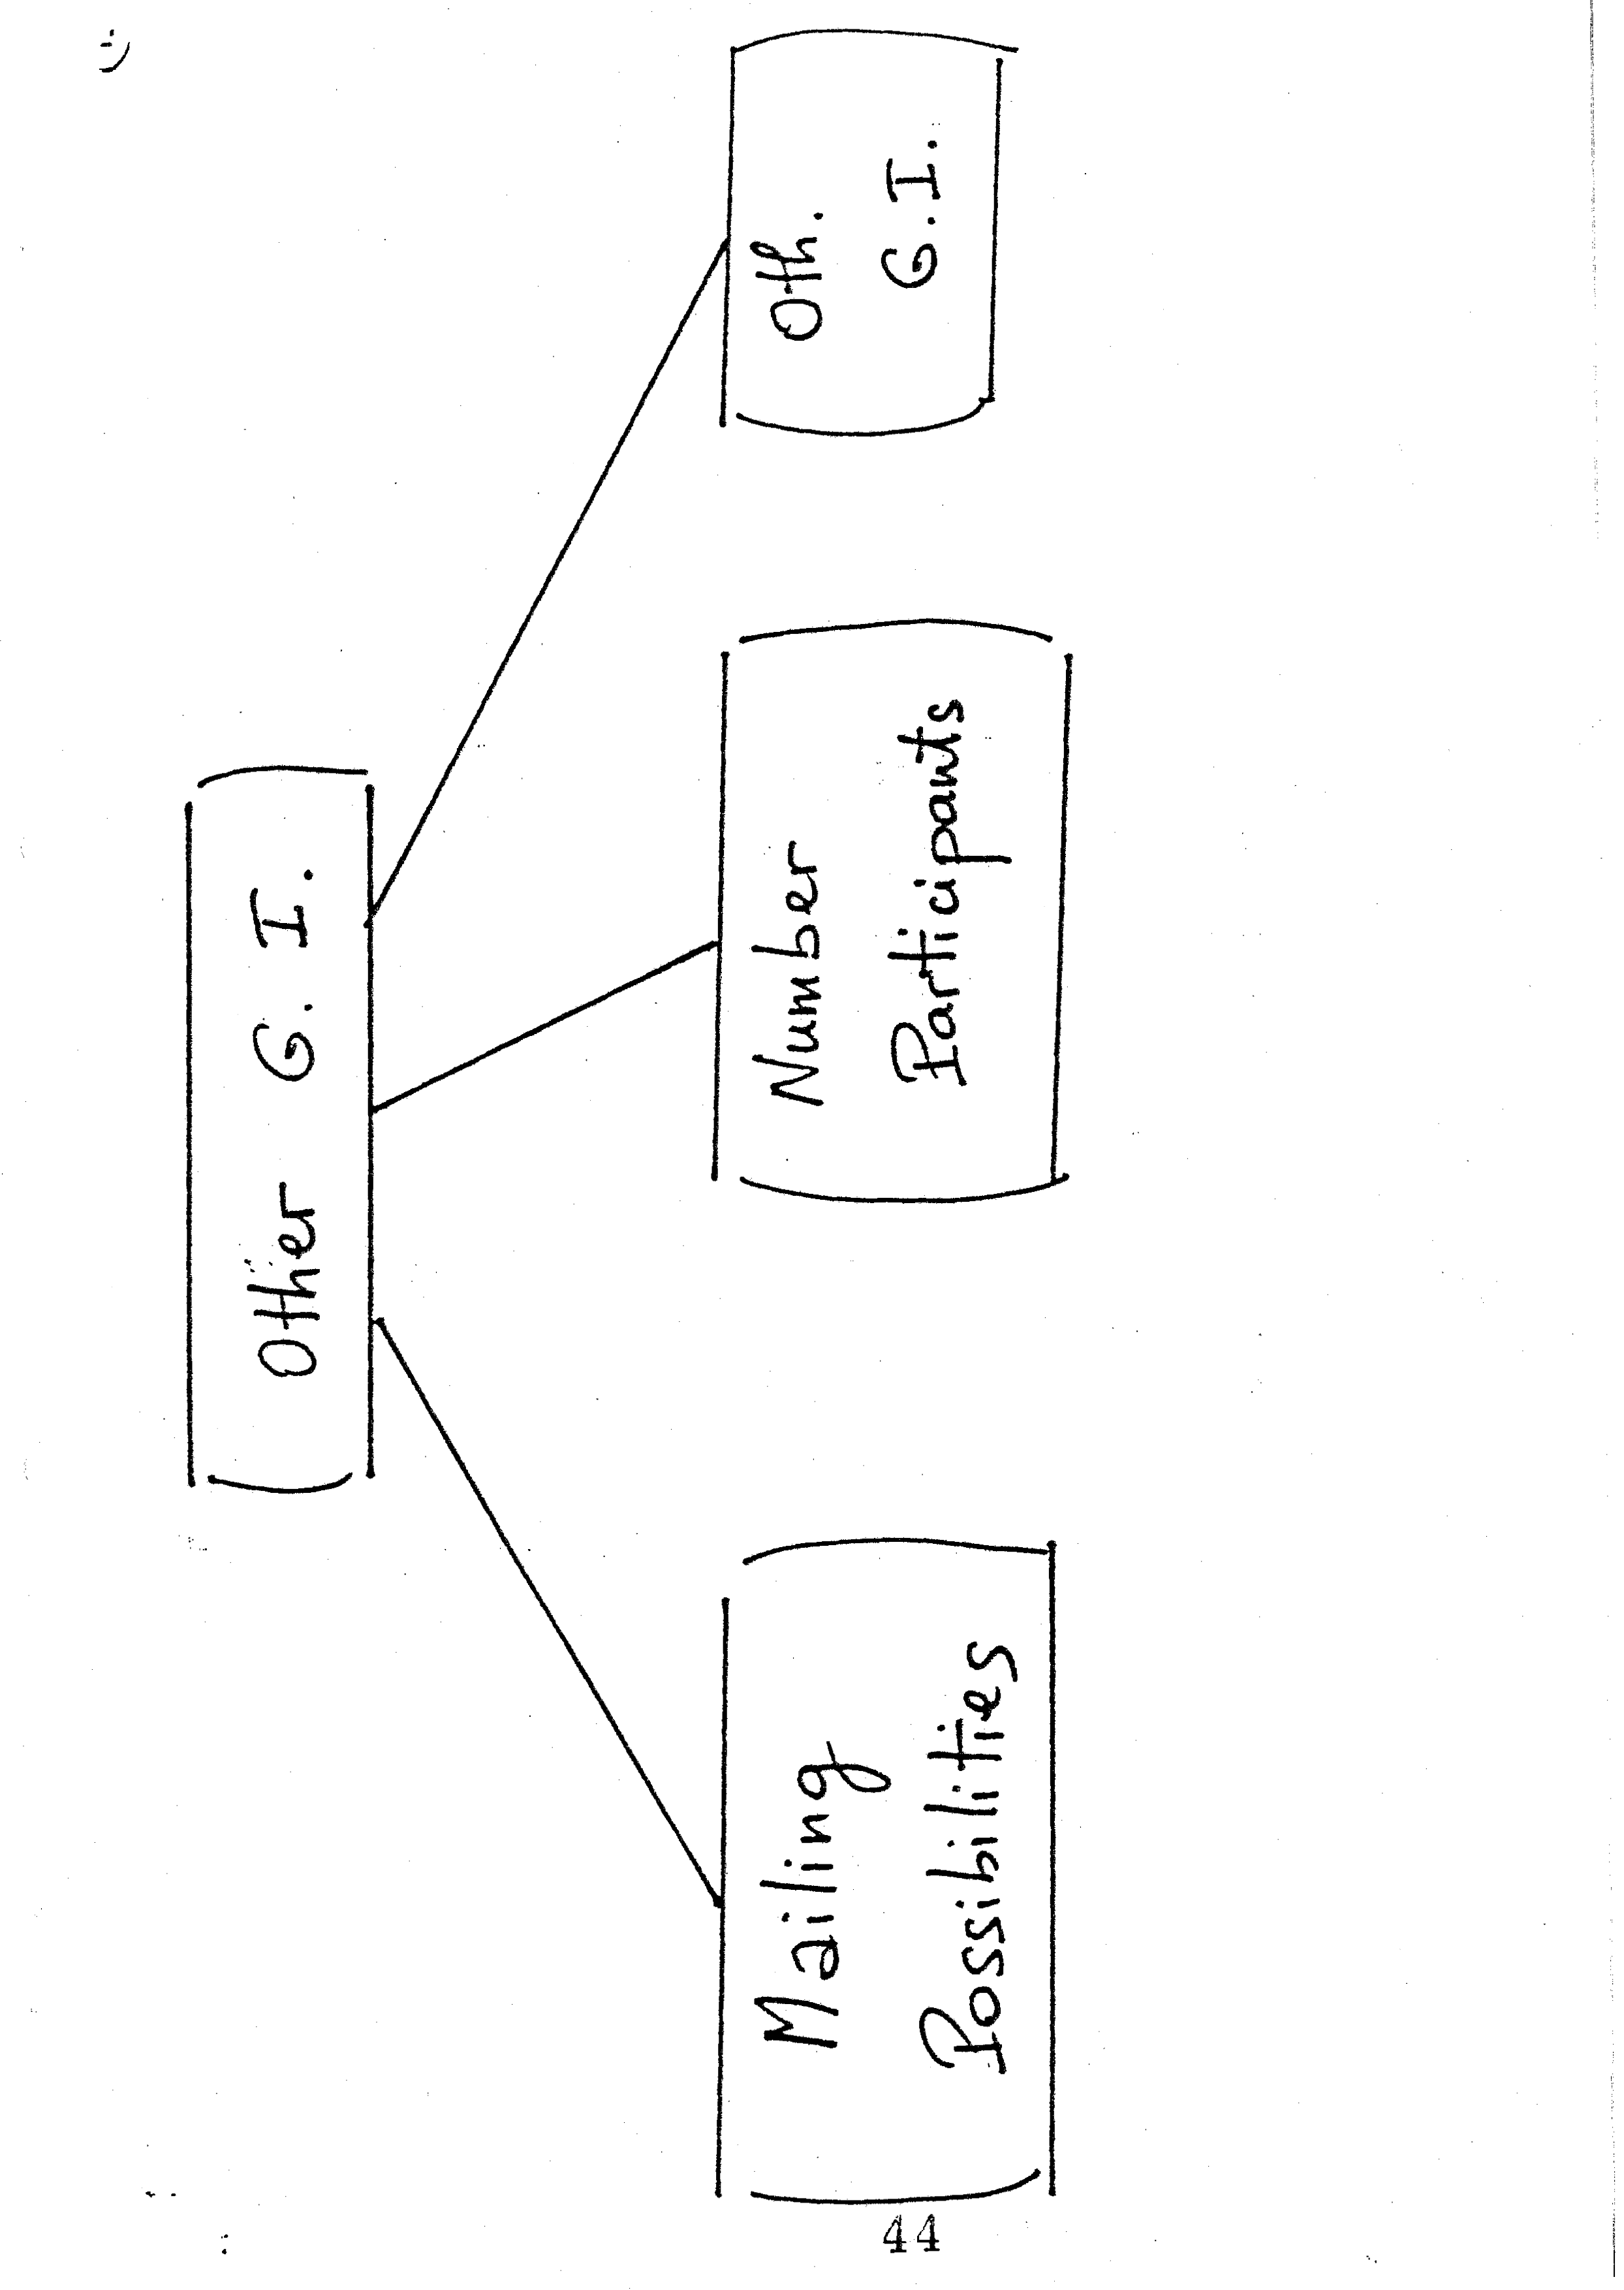 Other G. I.
Mailing
Possibilities
Number
Participants
Oth.
G.I.
44